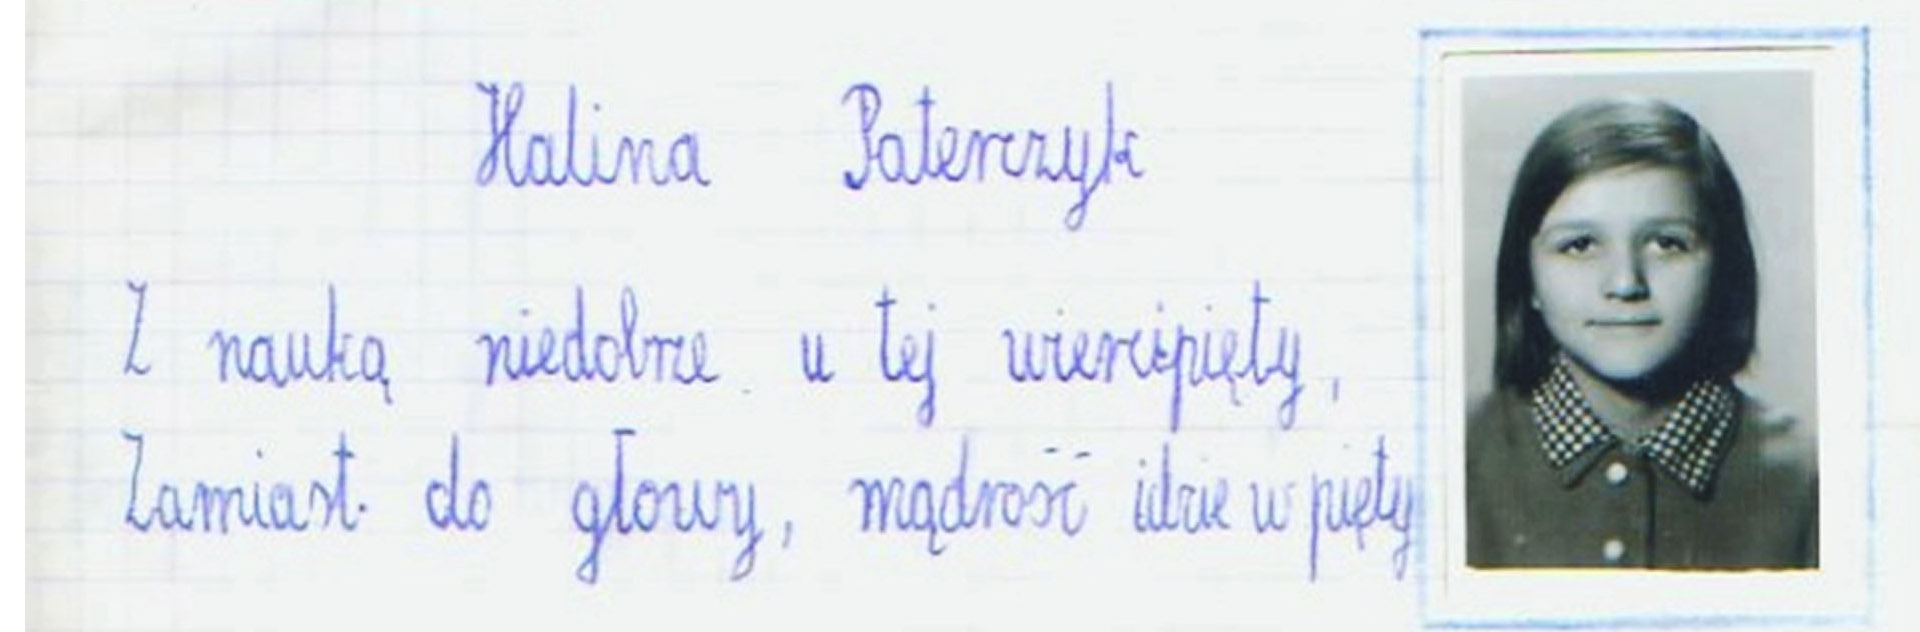 Halina Paterczyk
Z nauką niedobrze u tej wiercipięty,
Zamiast do głowy, mądrość idzie w pięty